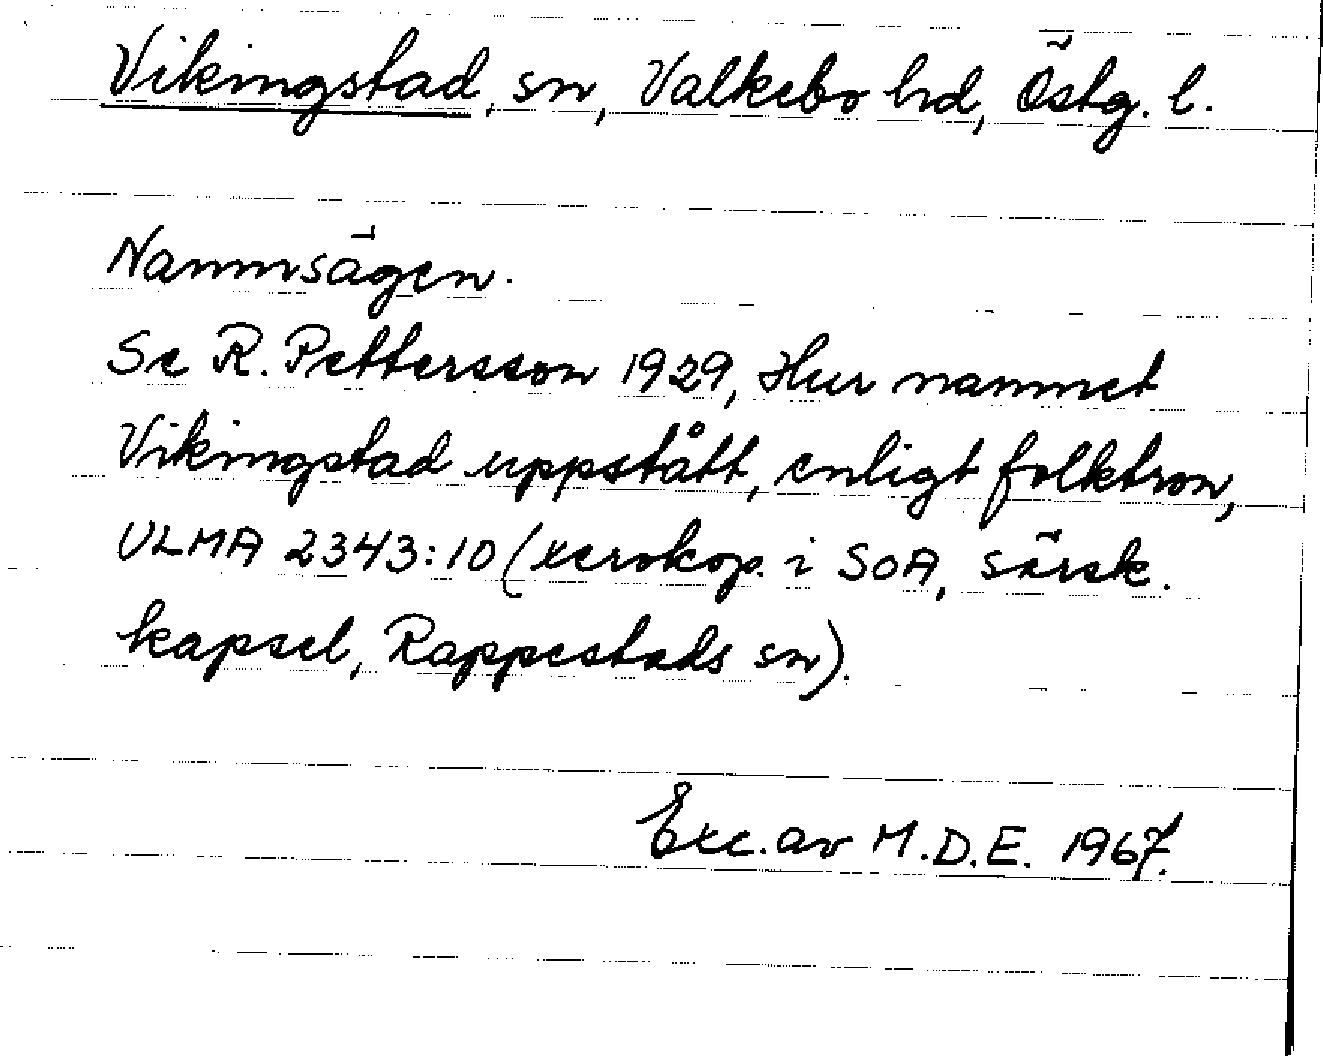 Vikingstad, sn, Valkebo hd, Östg. l.
Namnsägen.
Se R. Pettersson 1929, Hur namnet
Vikingstad uppstått, enligt folktron,
ULMA 2343:10 (xerokop. i SOA, särsk.
kapsel, Rappestads sn).
Exc. av M.D.E. 1967.